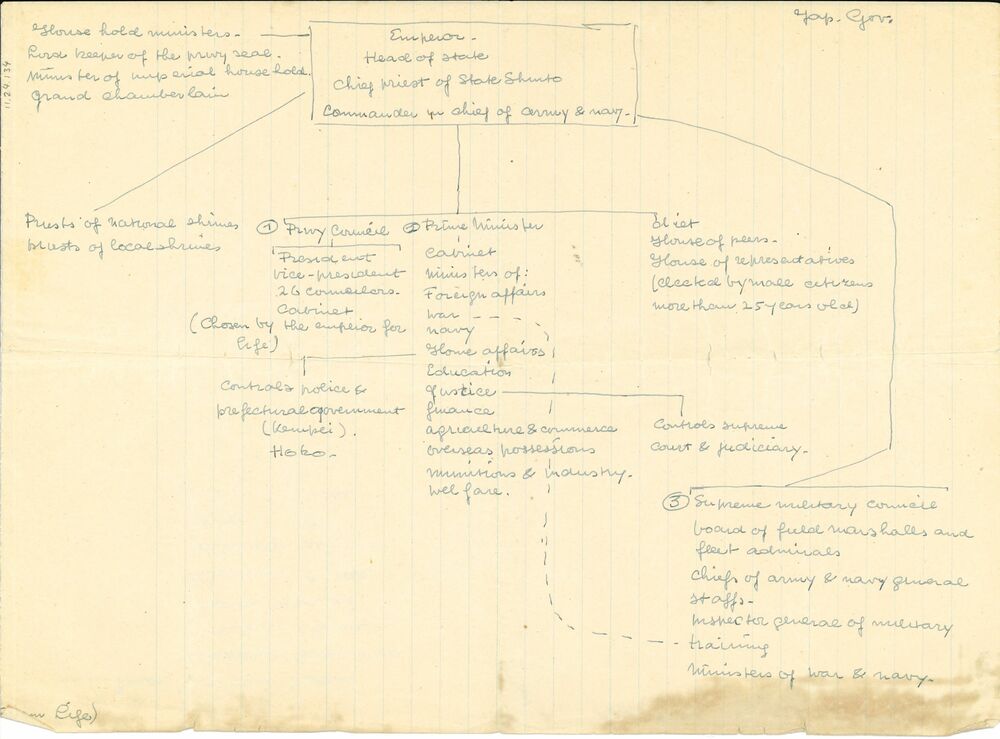 Jap. Gov.
House hold ministers.
Lord keeper of the privy seal.
Minister of imperial house hold.
Grand chamberlain
11.24.134
Emperor -
Head of State
Chief priest of State Shinto
Commander in chief of army & navy.
Priests of national shrines
priests of local shrines
① Privy Council
President
vice-president
26 councilers.
Cabinet
(Chosen by the emperor for
life)
② Prime Minister
Cabinet
ministers of:
Foreign affairs
war
navy
Home affairs
Education
Justice
finance
agriculture & commerce
overseas possessions
munitions & industry.
welfare.
Diet
House of peers.
House of representatives
(elected by male citizens
more than 25 years old)
Controls police &
prefectural government
(Kempei).
Hoko.
Controls supreme
court & judiciary.
③ Supreme military council
board of field marshalls and
fleet admirals
chiefs of army & navy general
staffs.
Inspector general of military
training
Ministers of war & navy.
Life)